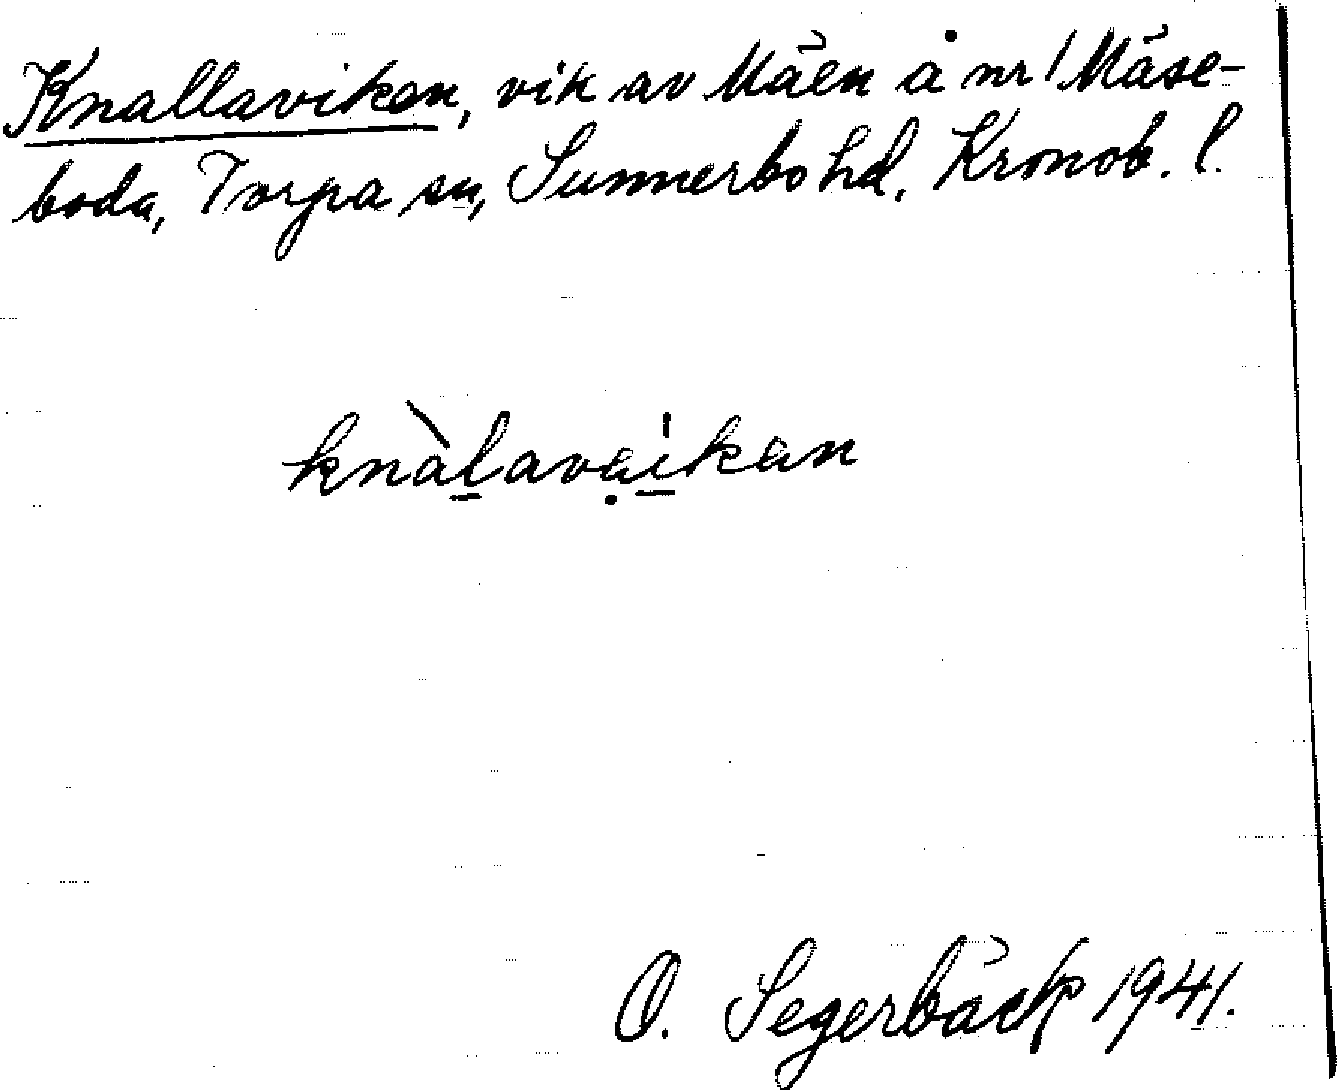 Knallaviken, vik av Mäen å nr 1 Mäse-
boda, Torpa sn, Sunnerbo hd, Kronob. l.
knàlavaikan
O. Segerbäck 1941.